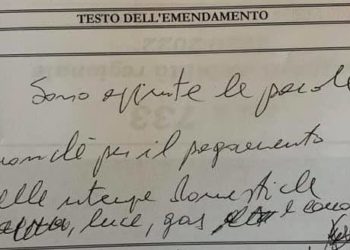 TESTO DELL'EMENDAMENTO
Sono aggiunte le parole
nonché per il pagamento
delle utenze domestiche
luce, gas e